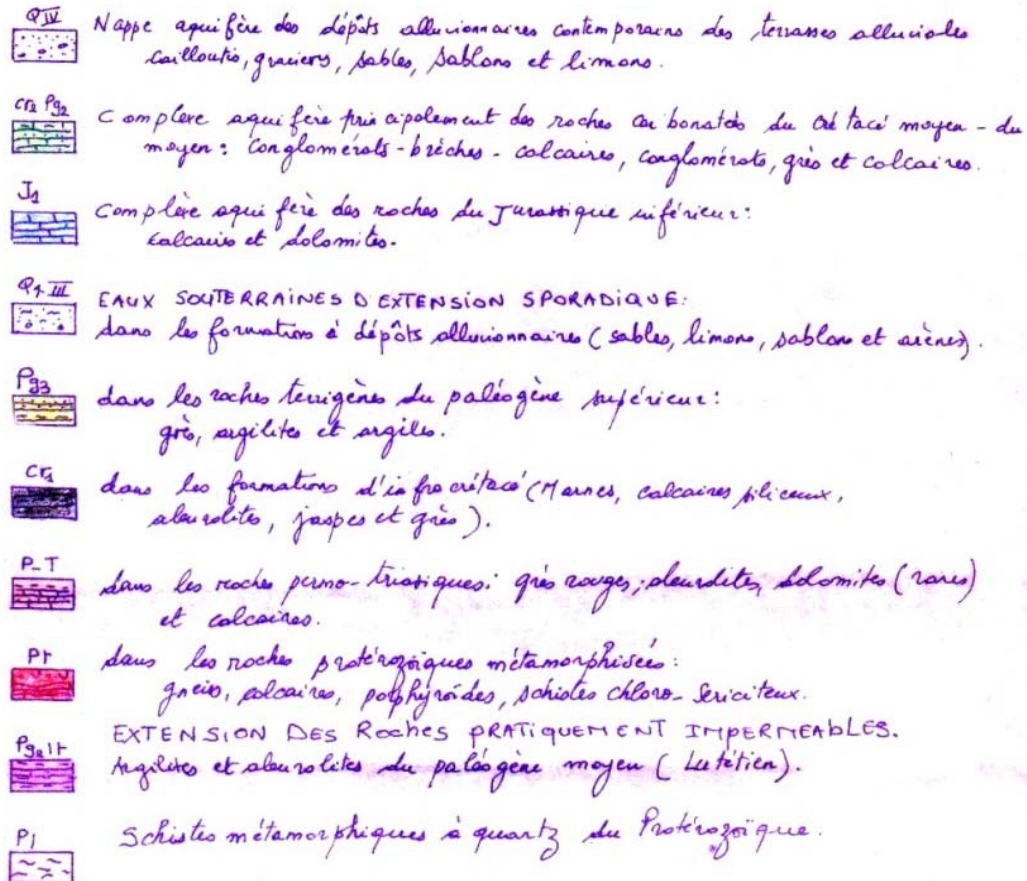 QIV Nappe aquifère des dépôts alluvionnaires contemporains des terrasses alluviales
cailloutis, graviers, sables, sablons et limons.
cr2 Pg2 Complexe aquifère principalement des roches carbonatés du Crétacé moyen - du
moyen: conglomérats - brèches - calcaires, conglomérats, grès et calcaires.
J1 Complère aquifère des roches du Jurassique inférieur:
calcaires et dolomites.
Q1-III EAUX SOUTERRAINES D'EXTENSION SPORADIQUE:
dans les formations à dépôts alluvionnaires (sables, limons, sablons et arènes).
Pg3 dans les roches terrigènes du paléogène supérieur:
grès, argilites et argiles.
Cr1 dans les formations d'infra crétacé (Marnes, calcaires siliceux,
aleurolites, jaspes et grès).
P-T dans les roches permo-triasiques: grès rouges, aleurolites, dolomites (rares)
et calcaires.
Pt dans les roches protérozoïques métamorphisées:
gneiss, calcaires, porphyroïdes, schistes chloro-sericiteux.
EXTENSION DES ROCHES PRATIQUEMENT IMPERMEABLES.
Pg2lt Argilites et aleurolites du paléogène moyen (Lutétien).
Schistes métamorphiques à quartz du Protérozoïque.